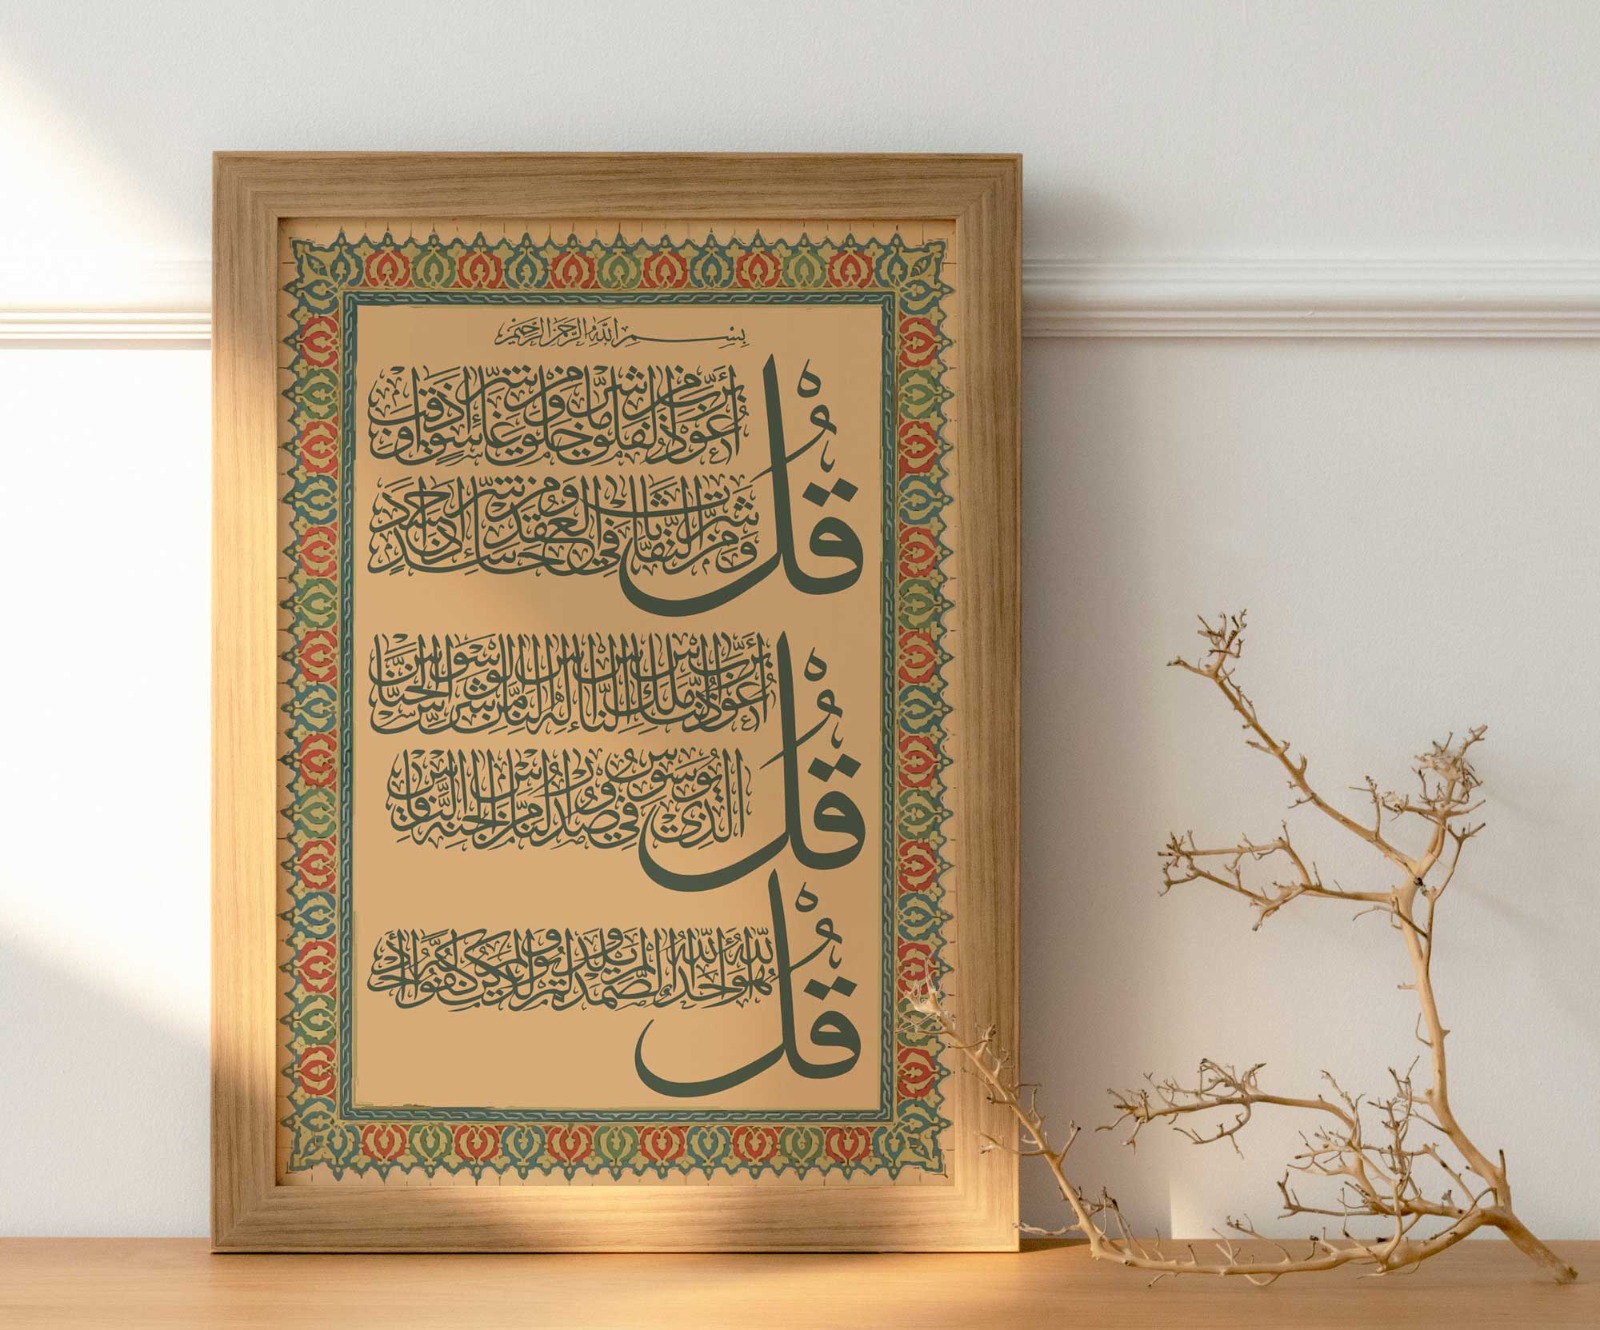 بسم الله الرحمن الرحيم
قُلْ أعوذ برب الفلق من شر ما خلق ومن شر غاسق إذا وقب
ومن شر النفاثات في العقد ومن شر حاسد إذا حسد
قُلْ أعوذ برب الناس ملك الناس إله الناس من شر الوسواس الخناس
الذي يوسوس في صدور الناس من الجنة والناس
قُلْ هو الله أحد الله الصمد لم يلد ولم يولد ولم يكن له كفوا أحد